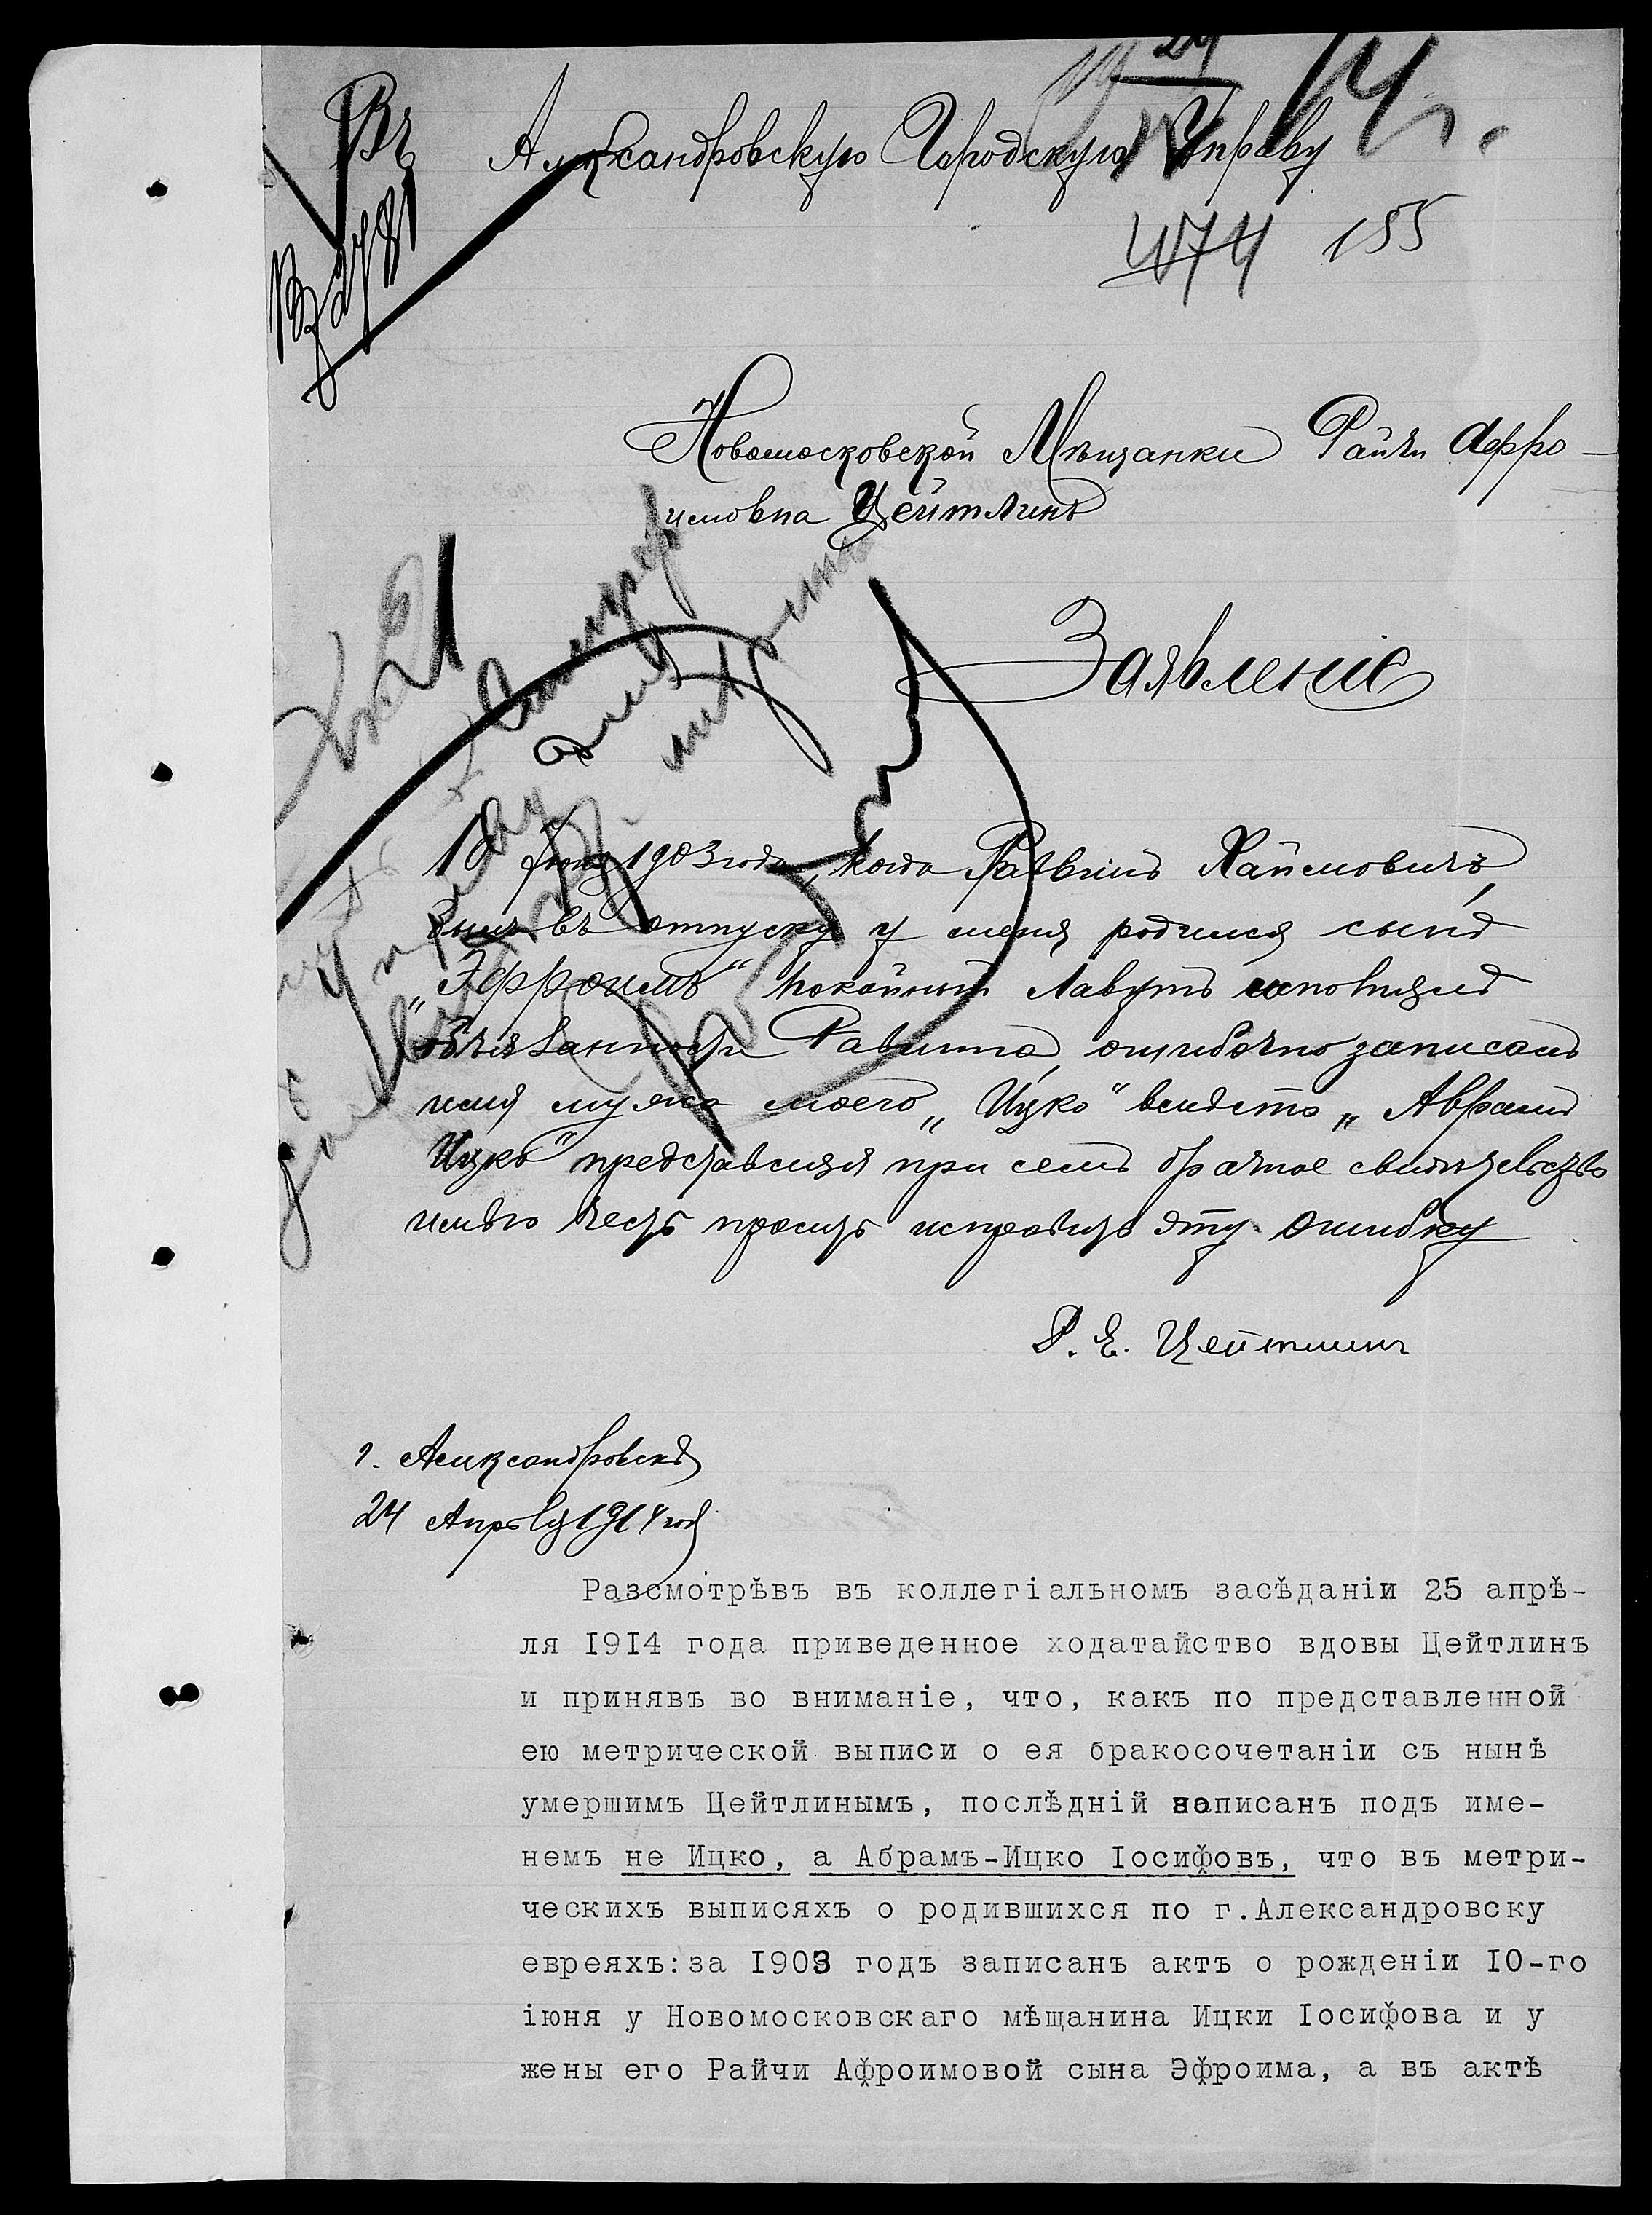 19 24/IV 14 г.
Въ Александровскую Городскую Управу
4074 155
Новомосковской Мѣщанки Райчи Аффро-
имовна Цейтлинъ
Заявленіе
10 Іюня 1903 года, когда Раввинъ Хаимовичъ,
былъ въ отпуску у меня родился сынъ
„Эффроимъ“ покойный Лавутъ исполняя
обязанности Равина, ошибочно записалъ
имя мужа моего „Ицко“ вмѣсто „Аврамъ
Ицко“ представляя при семъ брачное свидѣтельство
имѣю честь просить исправить эту ошибку
Р. Е. Цейтлинъ
г. Александровскъ
24 Апрѣля 1914 год
Разсмотрѣвъ въ коллегіальномъ засѣданіи 25 апрѣ-
ля 1914 года приведенное ходатайство вдовы Цейтлинъ
и принявъ во вниманіе, что, какъ по представленной
ею метрической выписи о ея бракосочетаніи съ нынѣ
умершимъ Цейтлинымъ, послѣдній записанъ подъ име-
немъ не Ицко, а Абрамъ-Ицко Іосифовъ, что въ метри-
ческихъ выписяхъ о родившихся по г.Александровску
евреяхъ:за 1903 годъ записанъ актъ о рожденіи 10-го
іюня у Новомосковскаго мѣщанина Ицки Іосифова и у
жены его Райчи Афроимовой сына Эфроима, а въ актѣ